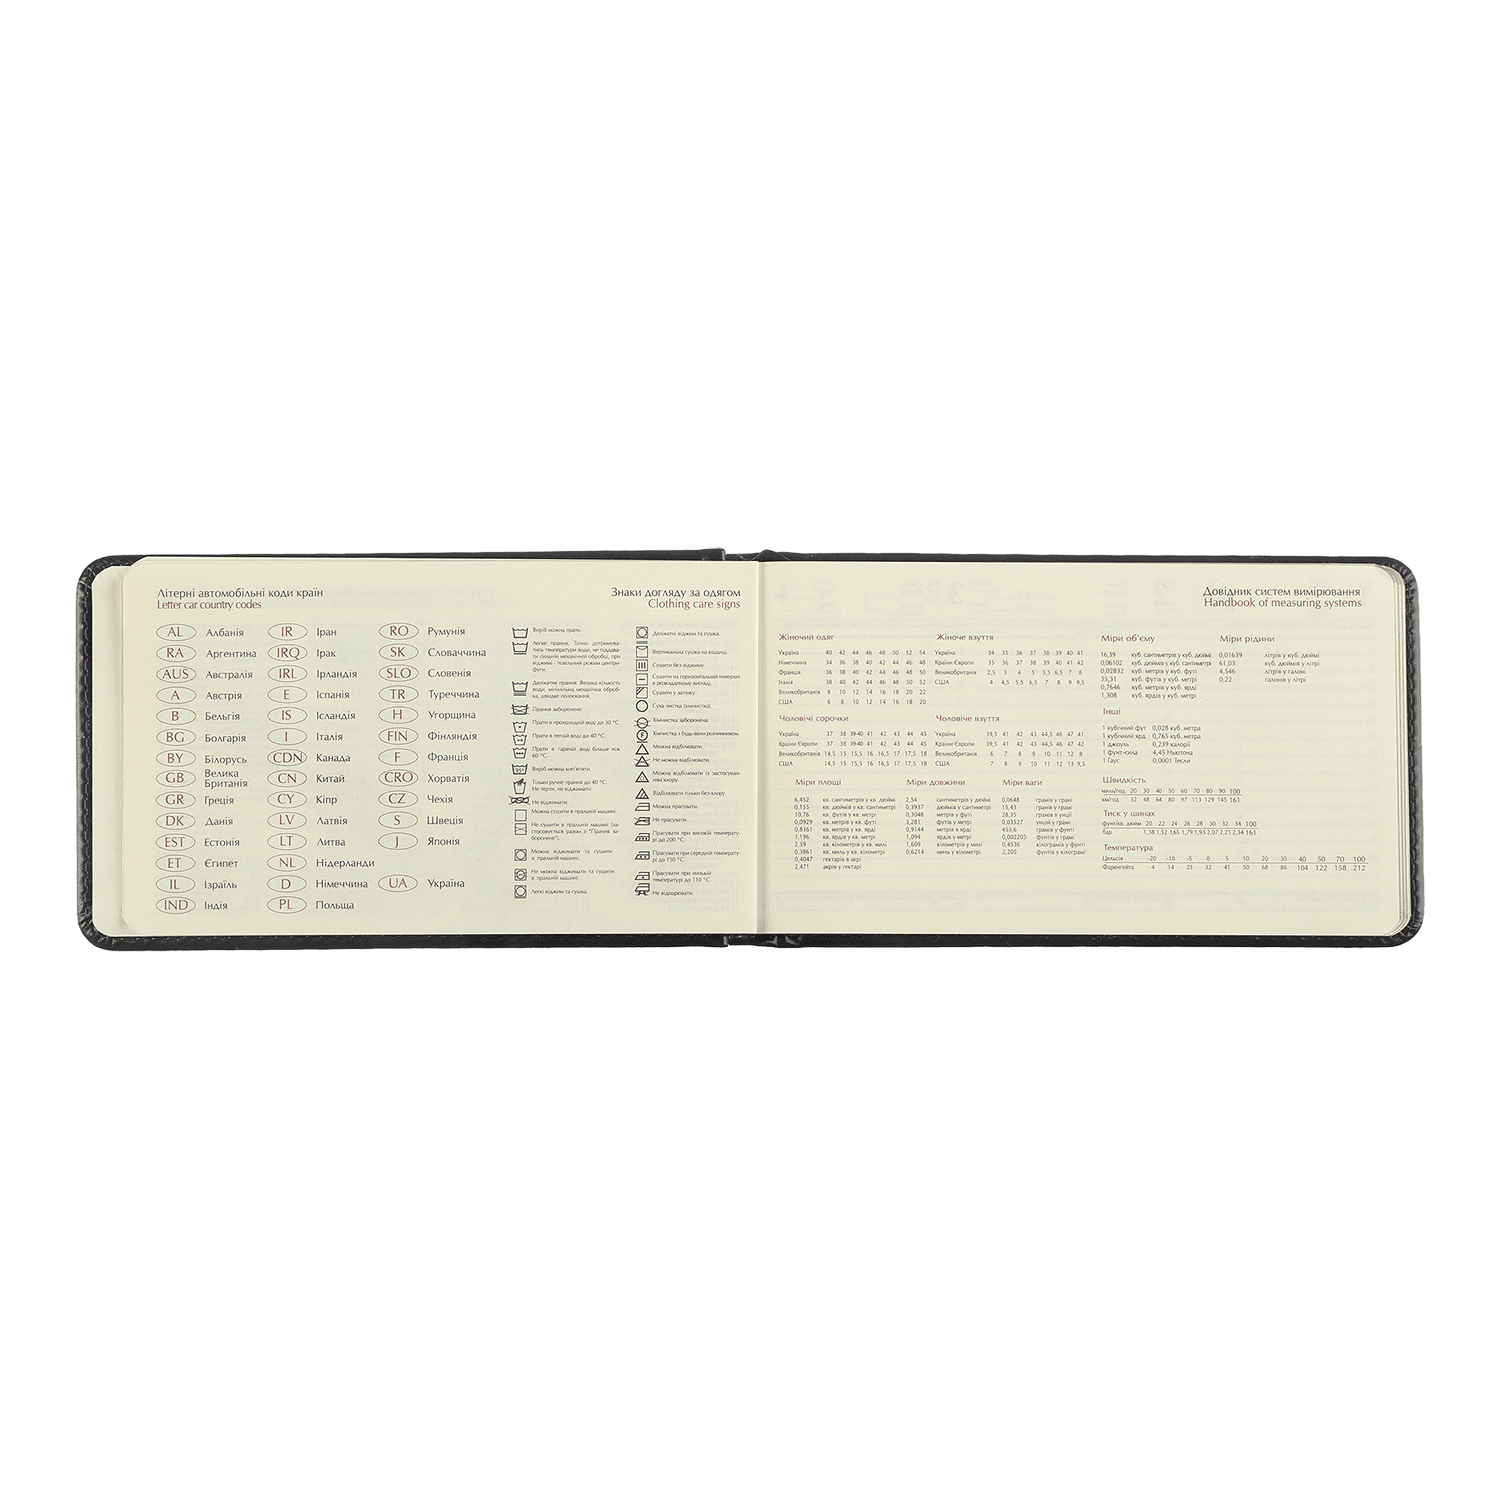 Літерні автомобільні коди країн
Letter car country codes
AL Албанія
RA Аргентина
AUS Австралія
A Австрія
B Бельгія
BG Болгарія
BY Білорусь
GB Велика
Британія
GR Греція
DK Данія
EST Естонія
ET Єгипет
IL Ізраїль
IND Індія
IR Іран
IRQ Ірак
IRL Ірландія
E Іспанія
IS Ісландія
I Італія
CDN Канада
CN Китай
CY Кіпр
LV Латвія
LT Литва
NL Нідерланди
D Німеччина
PL Польща
RO Румунія
SK Словаччина
SLO Словенія
TR Туреччина
H Угорщина
FIN Фінляндія
F Франція
CRO Хорватія
CZ Чехія
S Швеція
J Японія
UA Україна
Знаки догляду за одягом
Clothing care signs
Виріб можна прати.
Легке прання. Точно дотримува-
тись температури води, не піддава-
ти сильній механічній обробці, при
віджимі - повільний режим центри-
фуги.
Делікатне прання. Велика кількість
води, мінімальна механічна оброб-
ка, швидке полоскання.
Прання заборонене.
Прати в прохолодній воді до 30 °C.
Прати в теплій воді до 40 °C.
Прати в гарячій воді більше ніж
60 °C.
Виріб можна кип'ятити.
Тільки ручне прання до 40 °C.
Не терти, не віджимати.
Не віджимати.
Можна сушити в пральній машині.
Не сушити в пральній машині (за-
стосовується разом з "Прання за-
боронене").
Можна віджимати та сушити
в пральній машині.
Не можна віджимати та сушити
в пральній машині.
Легкі віджим та сушка.
Делікатні віджим та сушка.
Вертикальна сушка на вішалці.
Сушити без віджиму.
Сушити на горизонтальній поверхні
в розкладеному вигляді.
Сушити у затінку.
Суха чистка (хімчистка).
Хімчистка заборонена.
F Хімчистка з будь-яким розчинником.
Можна відбілювати.
Не можна відбілювати.
Можна відбілювати із застосуван-
ням хлору.
Відбілювати тільки без хлору.
Можна прасувати.
Не прасувати.
Прасувати при високій температу-
рі до 200 °C.
Прасувати при середній температу-
рі до 150 °C.
Прасувати при низькій
температурі до 110 °C.
Не відпарювати.
Довідник систем вимірювання
Handbook of measuring systems
Жіночий одяг
Україна 40 42 44 46 48 50 52 54
Німеччина 34 36 38 40 42 44 46 48
Франція 36 38 40 42 44 46 48 50
Італія 38 40 42 44 46 48 50 52
Великобританія 8 10 12 14 16 18 20 22
США 6 8 10 12 14 16 18 20
Жіноче взуття
Україна 34 35 36 37 38 39 40 41
Країни Європи 35 36 37 38 39 40 41 42
Великобританія 2,5 3 4 5 5,5 6,5 7 8
США 4 4,5 5,5 6,5 7 8 9 9,5
Чоловічі сорочки
Україна 37 38 39-40 41 42 43 44 45
Країни Європи 37 38 39-40 41 42 43 44 45
Великобританія 14,5 15 15,5 16 16,5 17 17,5 18
США 14,5 15 15,5 16 16,5 17 17,5 18
Чоловіче взуття
Україна 39,5 41 42 43 44,5 46 47 41
Країни Європи 39,5 41 42 43 44,5 46 47 42
Великобританія 6 7 8 9 10 11 12 8
США 7 8 9 10 11 12 13 9,5
Міри площі
6,452 кв. сантиметрів у кв. дюймі
0,155 кв. дюймів у кв. сантиметрі
10,76 кв. футів у кв. метрі
0,0929 кв. метрів у кв. футі
0,8361 кв. метрів у кв. ярді
1,196 кв. ярдів у кв. метрі
2,59 кв. кілометрів у кв. милі
0,3861 кв. миль у кв. кілометрі
0,4047 гектарів в акрі
2,471 акрів у гектарі
Міри довжини
2,54 сантиметрів у дюймі
0,3937 дюймів у сантиметрі
0,3048 метрів у футі
3,281 футів у метрі
0,9144 метрів в ярді
1,094 ярдів у метрі
1,609 кілометрів у милі
0,6214 миль у кілометрі
Міри ваги
0,0648 грамів у грані
15,43 гранів у грамі
28,35 грамів в унції
0,03527 унцій у грамі
453,6 грамів у фунті
0,002205 фунтів у грамі
0,4536 кілограмів у фунті
2,205 фунтів у кілограмі
Міри об'єму
16,39 куб. сантиметрів у куб. дюймі
0,06102 куб. дюймів у куб. сантиметрі
0,02832 куб. метрів у куб. футі
35,31 куб. футів у куб. метрі
0,7646 куб. метрів у куб. ярді
1,308 куб. ярдів у куб. метрі
Міри рідини
0,01639 літрів у куб. дюймі
61,03 куб. дюймів у літрі
4,546 літрів у галоні
0,22 галонів у літрі
Інші
1 кубічний фут 0,028 куб. метра
1 кубічний ярд 0,765 куб. метра
1 джоуль 0,239 калорії
1 фунт-сила 4,45 Ньютона
1 Гаус 0,0001 Тесли
Швидкість
миль/год 20 30 40 50 60 70 80 90 100
км/год 32 48 64 80 97 113 129 145 161
Тиск у шинах
фунт/кв. дюйм 20 22 24 26 28 30 32 34 100
бар 1,38 1,52 1,65 1,79 1,93 2,07 2,21 2,34 161
Температура
Цельсія -20 -10 -5 0 5 10 20 30 40 50 70 100
Фаренгейта -4 14 23 32 41 50 68 86 104 122 158 212